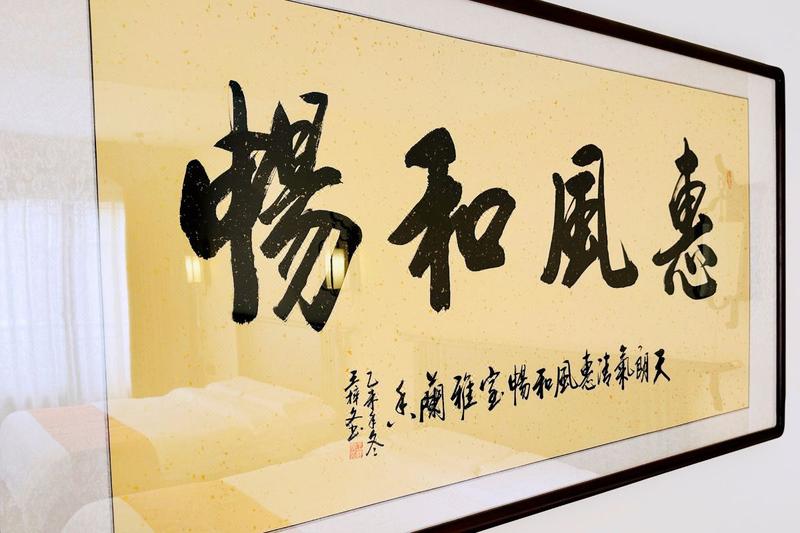 惠風和暢
天朗氣清惠風和暢室雅蘭香
乙未年冬
王梓文书